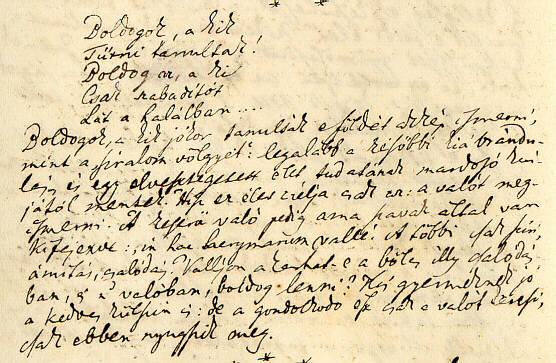 * *
Boldogok, a kik
Tűrni tanultak!
Boldog az, a ki
Csak szabadítót
Lát a halálban....
Boldogok, a kik jókor tanulták e földet ismerni,
mint a siralom völgyét: legalább a későbbi kiábrándu-
lás és egy elvesztegetett élet tudatának mardosó kín-
jától mentek. Hisz ez élet célja csak az: a valót meg-
ismerni. A keserű való pedig ama szavak által van
kifejezve: „in hac lacrymarum valle! A többi csak szín,
ámítás, csalódás! Valljon a bölcs illy csalódás-
ban, s valóban, boldog lenni? Kis gyermeknek jó
a kedves külszin is: de a gondolkodó ész csak a valót keresi,
csak ebben nyugszik meg.
* *